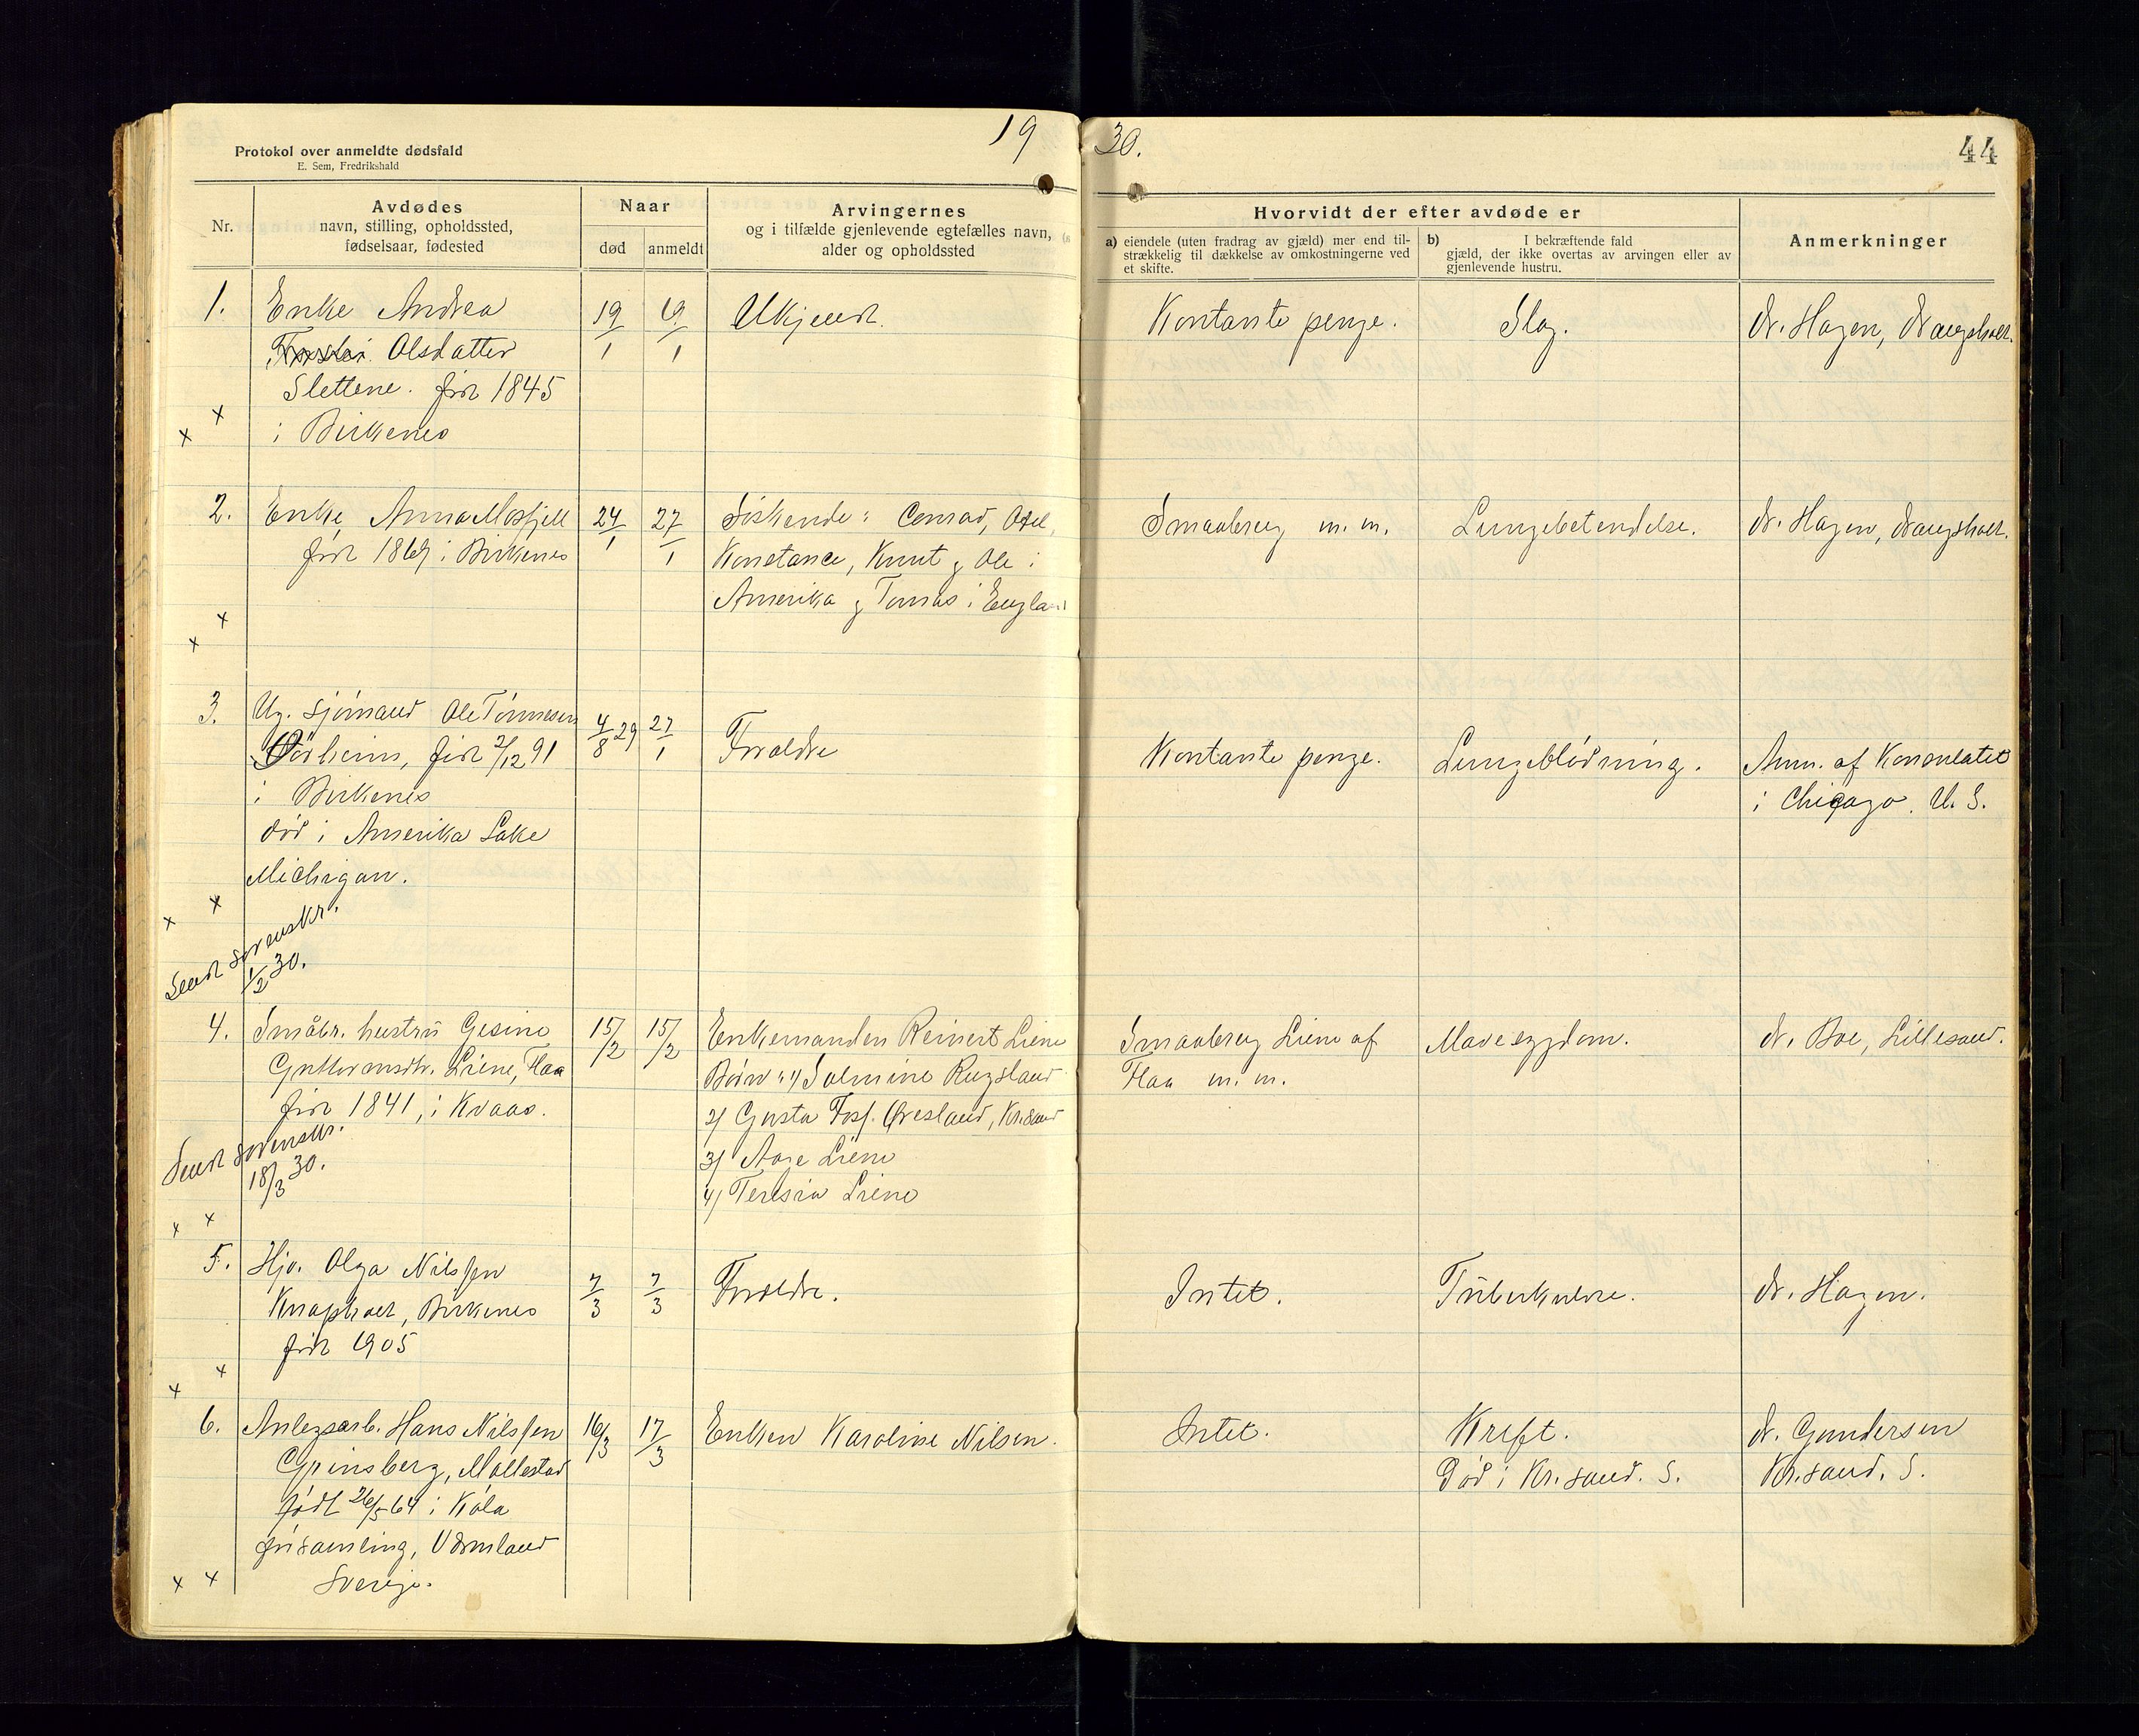 Protokol over anmeldte dødsfald
E. Sem, Fredrikshald
19 30.
44
Nr.
Avdødes
navn, stilling, opholdssted,
fødselsaar, fødested
Naar
død
anmeldt
Arvingernes
og i tilfælde gjenlevende egtefælles navn,
alder og opholdssted
Hvorvidt der efter avdøde er
a) eiendele (uten fradrag av gjæld) mer end til-
strækkelig til dækkelse av omkostningerne ved
et skifte.
b) I bekræftende fald
gjæld, der ikke overtas av arvingen eller av
gjenlevende hustru.
Anmerkninger
1.
Enke Andrea
Olsdatter
Slettene. født 1845
i Birkenes
19/1
19/1
Ukjendt.
Kontante penge.
Slag.
Dr. Hagen, Drangsholt.
x
x
2.
Enke Anna Mosfjell
født 1869 i Birkenes
24/1
27/1
Søskende: Conrad, Axel,
Konstance, Knut & Ole i
Amerika & Tomas i England
Smaabrug m. m.
Lungebetendelse.
Dr. Hagen, Drangsholt.
x
x
3.
Ug. sjømand Ole Tønnesen
født 2/12 91
i Birkenes
død i Amerika Lake
Michigan.
4/8 29
27/1
Forældre
Kontante penge.
Lungeblødning.
Anm. af Konsulatet
i Chicago. U. S.
x x
Sendt Sorenskr.
1/2 30.
4.
Småbr. hustru Gesine
Guttormsdtr. Liene, Flaa
født 1841, i Kvaas.
15/2
15/2
Enkemanden Reinert Liene
Børn: 1) Salmine Rugsland
2) Gusta Jos. Øvesland, Kr.sand
3) Aase Liene
4) Teresia Liene
Smaabrug Liene af
Flaa m. m.
Mavesygdom.
Dr. Boe, Lillesand.
Sendt Sorenskr.
18/3 30.
x x
5.
Hjv. Olga Nilssen
Knapholt, Birkenes
født 1905
7/3
7/3
Forældre.
Intet.
Tuberkulose.
Dr. Hagen.
x
x
6.
Anlegsarb. Hans Nilssen
Grinsberg, Mollestad
født 26/5 64 i Köla
församling, Värmland
Sverige.
16/3
17/3
Enken Karoline Nilsen.
Intet.
Kreft.
Død i Kr.sand. S.
Dr. Gundersen
Kr.sand. S.
x x